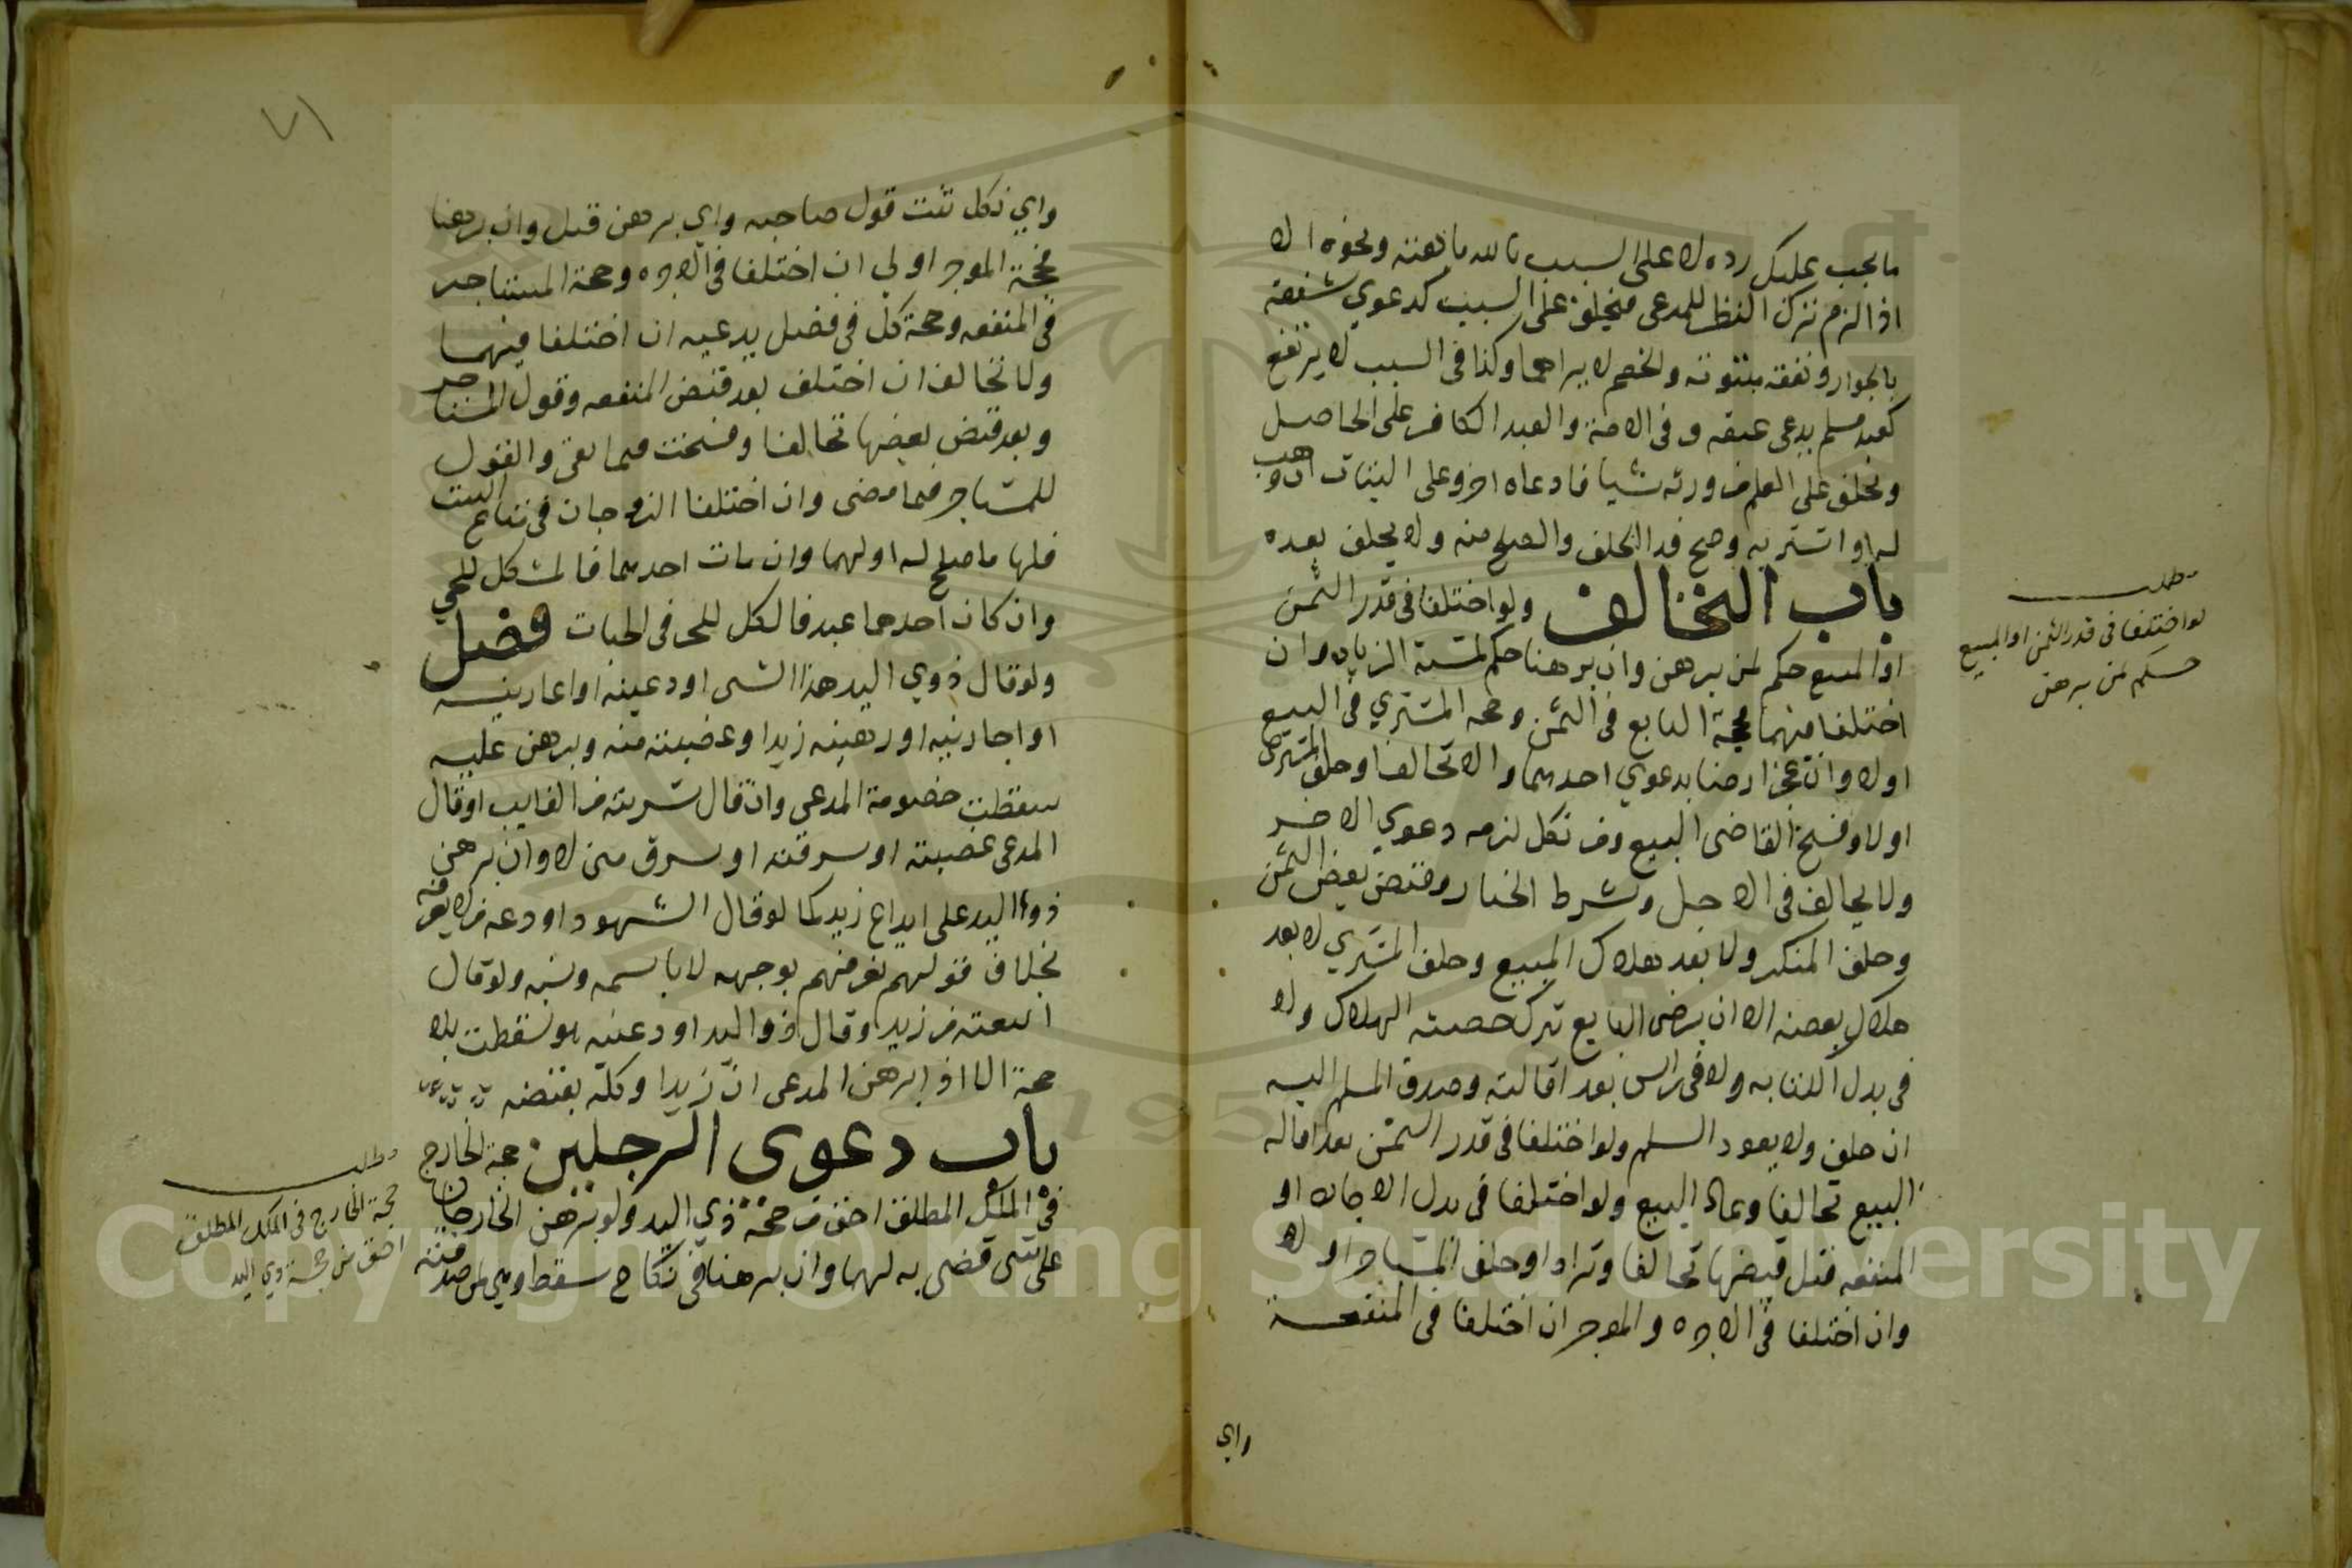 ما يجب عليك رده لا على السبب بالله ما بعته ونحوه الا
اذا لزم ترك النظر للمدعى فيحلف على السبب كدعوي شفعة
بالجوار ونفقة مبتوتة والخصم لا يراهما وكذا في السبب لا يرتفع
كعبد مسلم يدعى عتقه وفي الامة والعبد الكافر على الحاصل
ويحلف على العلم من ورث شيا فادعاه اخر وعلى البتات ان وهب
له او اشتريه وصح فدا الحلف والصلح منه ولا يحلف بعده
باب التخالف ولو اختلفا في قدر الثمن
او المبيع حكم لمن برهن وان برهنا حكم لمثبته الزياده وان
اختلفا فيهما فحجة البايع في الثمن وحجه المشتري في البيع
اولا وان عجزا رضيا بدعوي احدهما والا تحالفا وحلف المشتري
اولا وفسخ القاضى البيع ومن نكل لزمه دعوي الاخر
ولا يحالف في الاجل وشرط الخيار وقبض بعض الثمن
وحلف المنكر ولا بعد هلاك المبيع وحلف المشتري لا بعد
هلاك بعضه الا ان يرضى البايع بترك حصته الهلاك ولا
في بدل الكتابه ولا في راس بعد اقالته وصدق المسلم اليه
ان حلف ولا يعود السلم ولو اختلفا في قدر الثمن بعد اقاله
البيع تحالفا وعاد البيع ولو اختلفا في بدل الاجاره او
المنفعه قبل قبضها تحالفا وترادا وحلف المستاجر اولا
وان اختلفا في الاجره والموجر ان اختلفا في المنفعة
واي
مطلب
لو اختلفا في قدر الثمن او المبيع
حكم لمن برهن
٧١
واي نكل ثبت قول صاحبه واي برهن قبل وان برهنا
فحجة الموجر اولي ان اختلفا في الاجره وحجة المستاجر
في المنفعه وحجة كل في فضل يدعيه ان اختلفا فيهما
ولا تخالف ان اختلف بعد قبض المنفعه وقول المستاجر
وبعد قبض بعضها تحالفا وفسخت فيما بقي والقول
للمستاجر فيما مضى وان اختلفا الزوجان في متاع البيت
فلها ما صلح له اولهما وان مات احدهما فالمشكل للحي
وان كان احدهما عبد فالكل للحر في الحيات فصل
ولو قال ذوي اليد هذا الشى اودعينه او اعارينه
او اجارنيه او رهنينه زيد او غصبته منه وبرهن عليه
سقطت خصومة المدعى وان قال شريته من الغايب او قال
المدعى غصبته او سرقته او سرق منى لا وان برهن
ذوا اليد على ايداع زيد كما لو قال الشهود اودعه من لا نعرفه
بخلاف قولهم نعرفهم بوجهه لا باسمه ونسبه ولو قال
ابتعته من زيد وقال ذوا اليد اودعنيه هو سقطت بلا
حجة الا اذا برهن المدعى ان زيدا وكله بقبضه
باب دعوى الرجلين حجة الخارج
في الملك المطلق احق من حجة ذي اليد ولو برهن الخارجان
على شى قضى به لهما وان برهنا في نكاح سقطا وهي لمن صدقته
مطلب
حجة الخارج في الملك المطلق
احق من حجة ذوي اليد